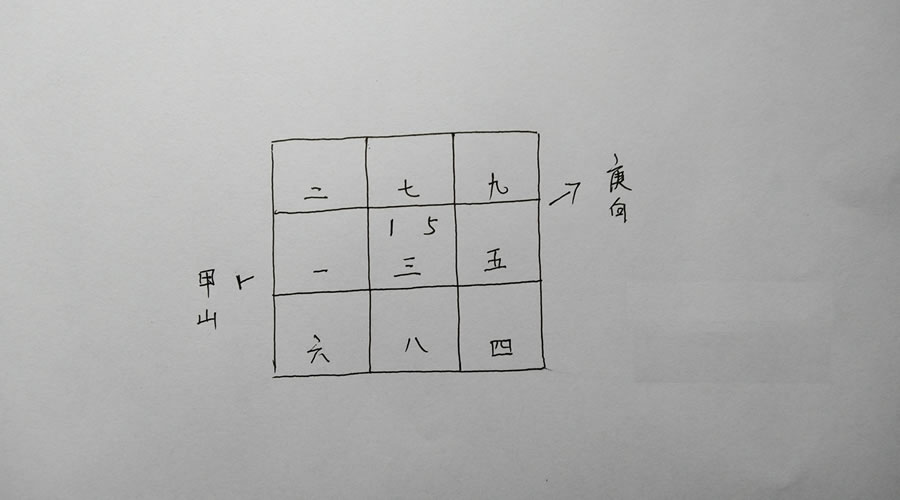 二 七 九
庚向
1 5
一 三 五
甲山
六 八 四